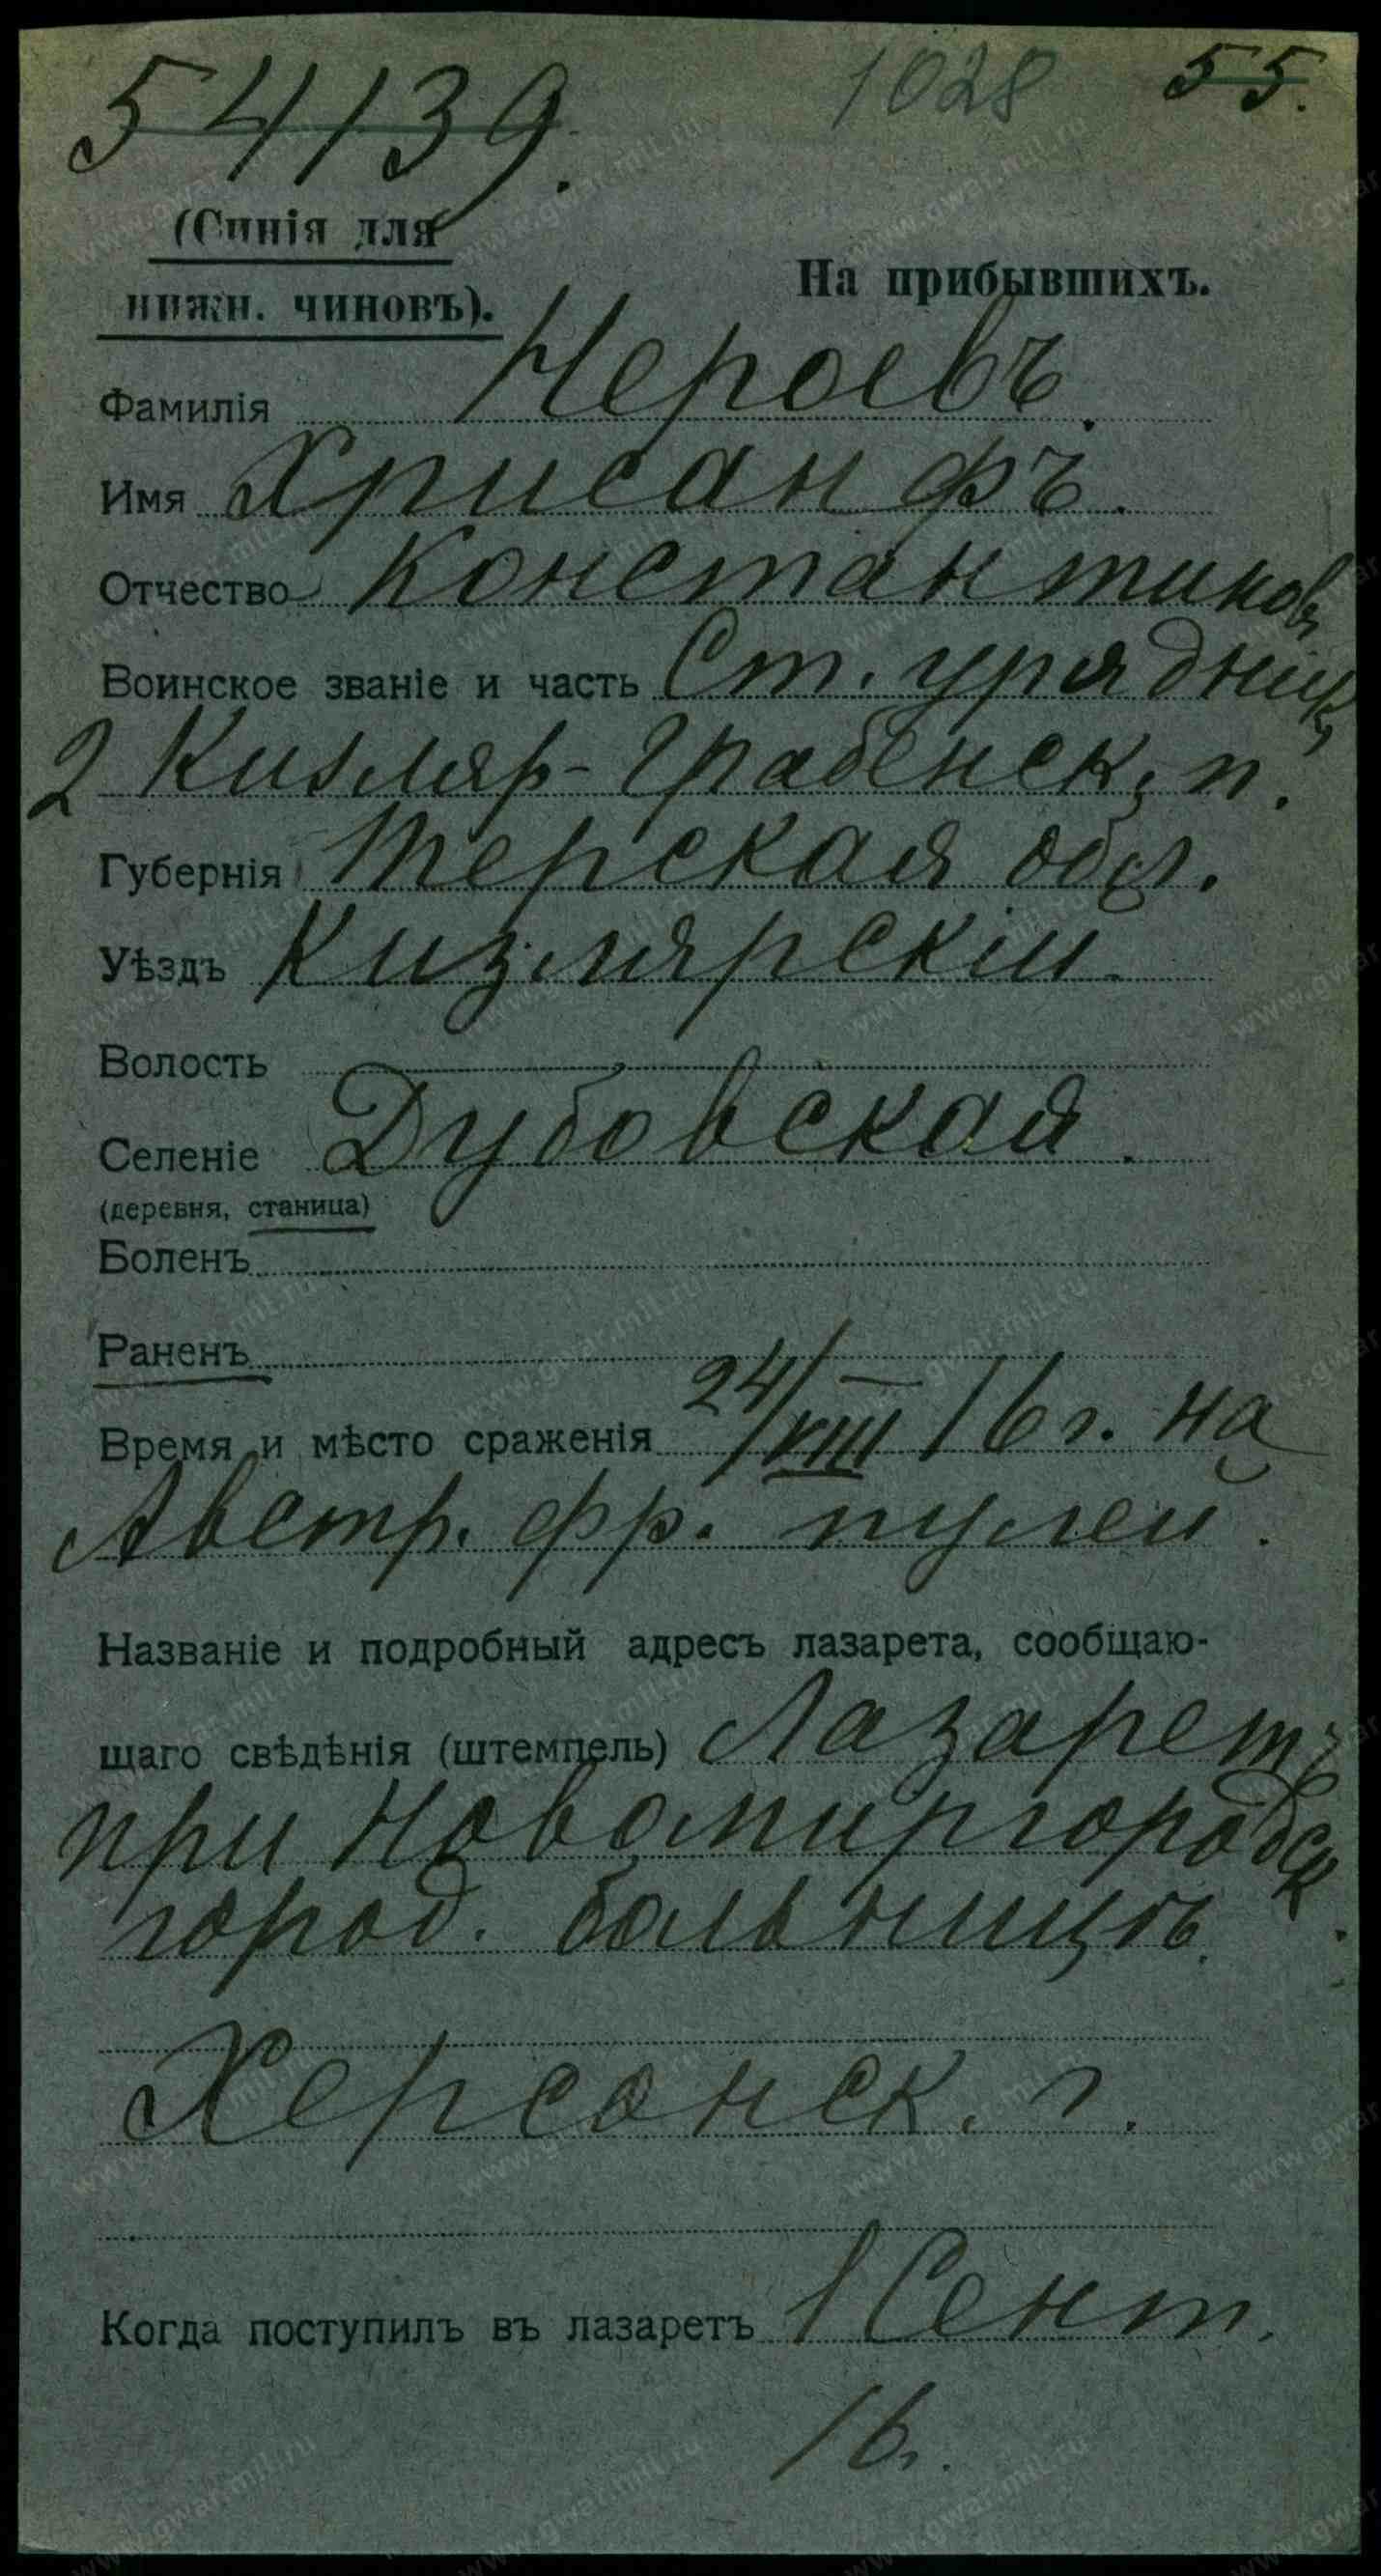 54139. 1028 55.
(Синія для
нижн. чиновъ).
На прибывшихъ.
Фамилія Нероевъ.
Имя Хрисанфъ.
Отчество Константиновъ
Воинское званіе и часть Ст. урядникъ
2 Кизляр-Гребенск. п.
Губернія Терская обл.
Уѣздъ Кизлярскій
Волость
Селеніе Дубовская.
(деревня, станица)
Боленъ
Раненъ
Время и мѣсто сраженія 24/VIII 16 г. на
Австр. фр. пулей.
Названіе и подробный адресъ лазарета, сообщаю-
щаго свѣдѣнія (штемпель) Лазаретъ
при Новомиргородск.
город. больницѣ.
Херсонск. г.
Когда поступилъ въ лазаретъ 1 Сент.
16 г.